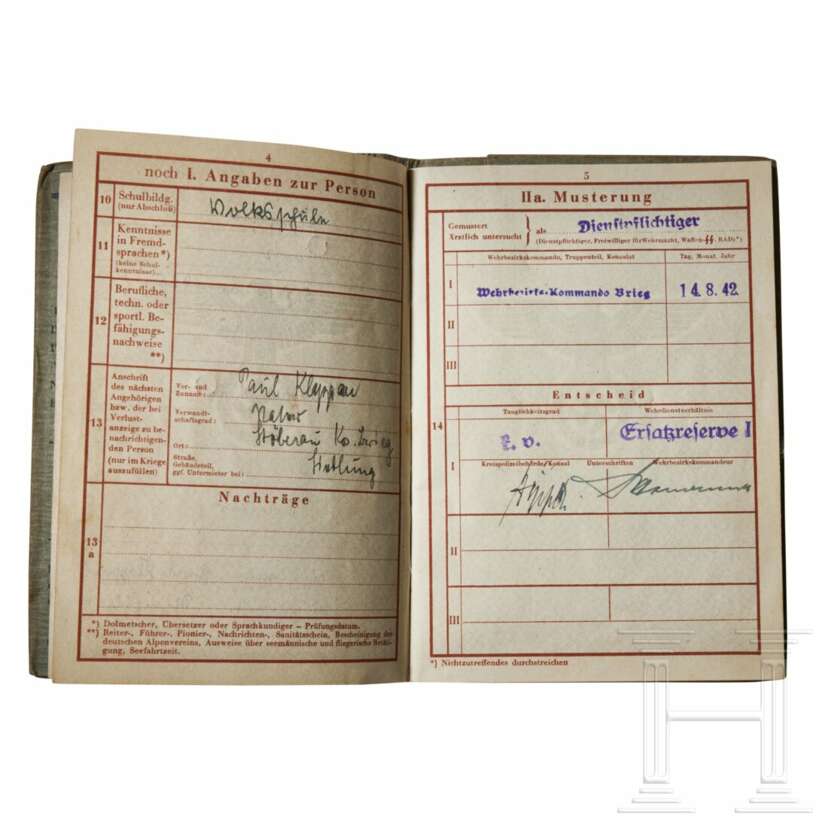 4
noch I. Angaben zur Person
10
Schulbildg.
(nur Abschluß)
Volksschule
11
Kenntnisse
in Fremd-
sprachen*)
(keine Schul-
kenntnisse)
12
Berufliche,
techn. oder
sportl. Be-
fähigungs-
nachweise
**)
13
Anschrift
des nächsten
Angehörigen
bzw. der bei
Verlust-
anzeige zu be-
nachrichtigen-
den Person
(nur im Kriege
auszufüllen)
Vor- und
Zuname:
Paul
Verwandt-
schaftsgrad:
Vater
Ort:
Stöberau Kr. Brieg
Straße,
Gebäudeteil,
ggf. Untermieter bei:
Siedlung
Nachträge
13
a
*) Dolmetscher, Übersetzer oder Sprachkundiger – Prüfungsdatum.
**) Reiter-, Führer-, Pionier-, Nachrichten-, Sanitätsschein, Bescheinigung des
deutschen Alpenvereins, Ausweise über seemännische und fliegerische Betäti-
gung, Seefahrtzeit.
5
IIa. Musterung
Gemustert
Ärztlich untersucht
als
Dienstpflichtiger
(Dienstpflichtiger, Freiwilliger für Wehrmacht, Waffen-SS, RAD)*)
Wehrbezirkskommando, Truppenteil, Konsulat
Tag, Monat, Jahr
I
Wehrbezirks-Kommando Brieg
14.8.42
II
III
Entscheid
14
Tauglichkeitsgrad
Wehrdienstverhältnis
k. v.
Ersatzreserve I
I
Kreispolizeibehörde/Konsul
Unterschriften
Wehrbezirkskommandeur
II
III
*) Nichtzutreffendes durchstreichen
H